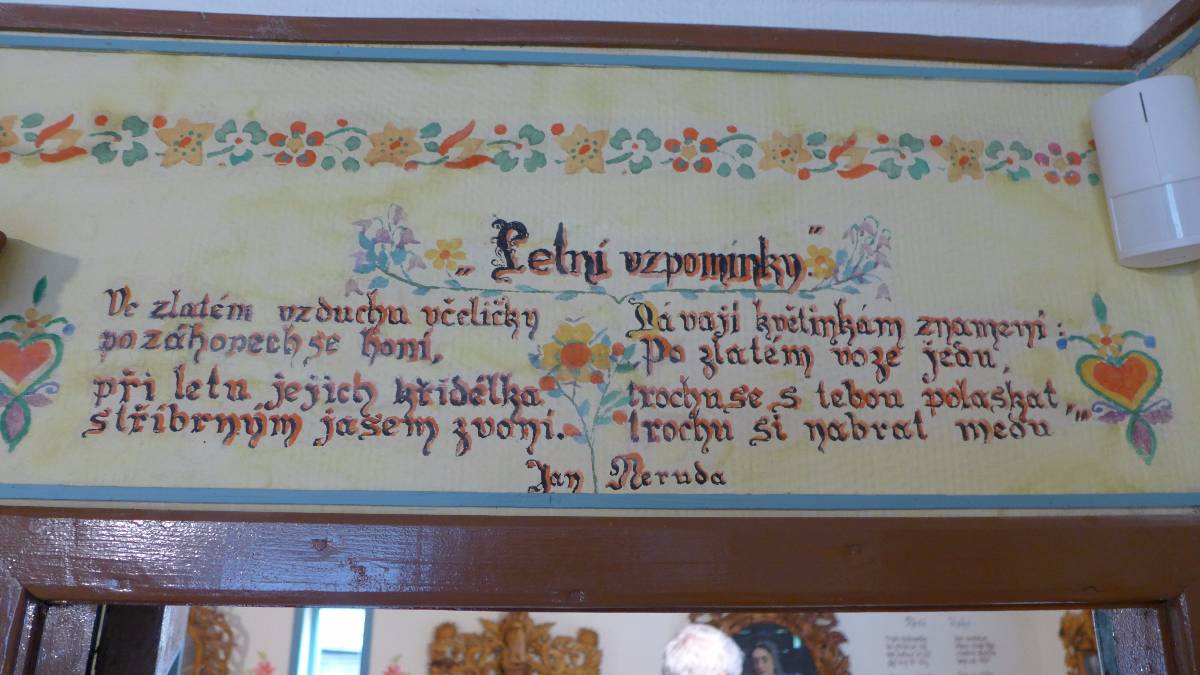 „Letní vzpomínky."
Ve zlatém vzduchu včeličky
po záhonech se honí,
při letu jejich křidélka
stříbrným jasem zvoní.
Dávají květinkám znamení:
„Po zlatém voze jedu,
trochu se s tebou polaskat,
trochu si nabrat medu""
Jan Neruda